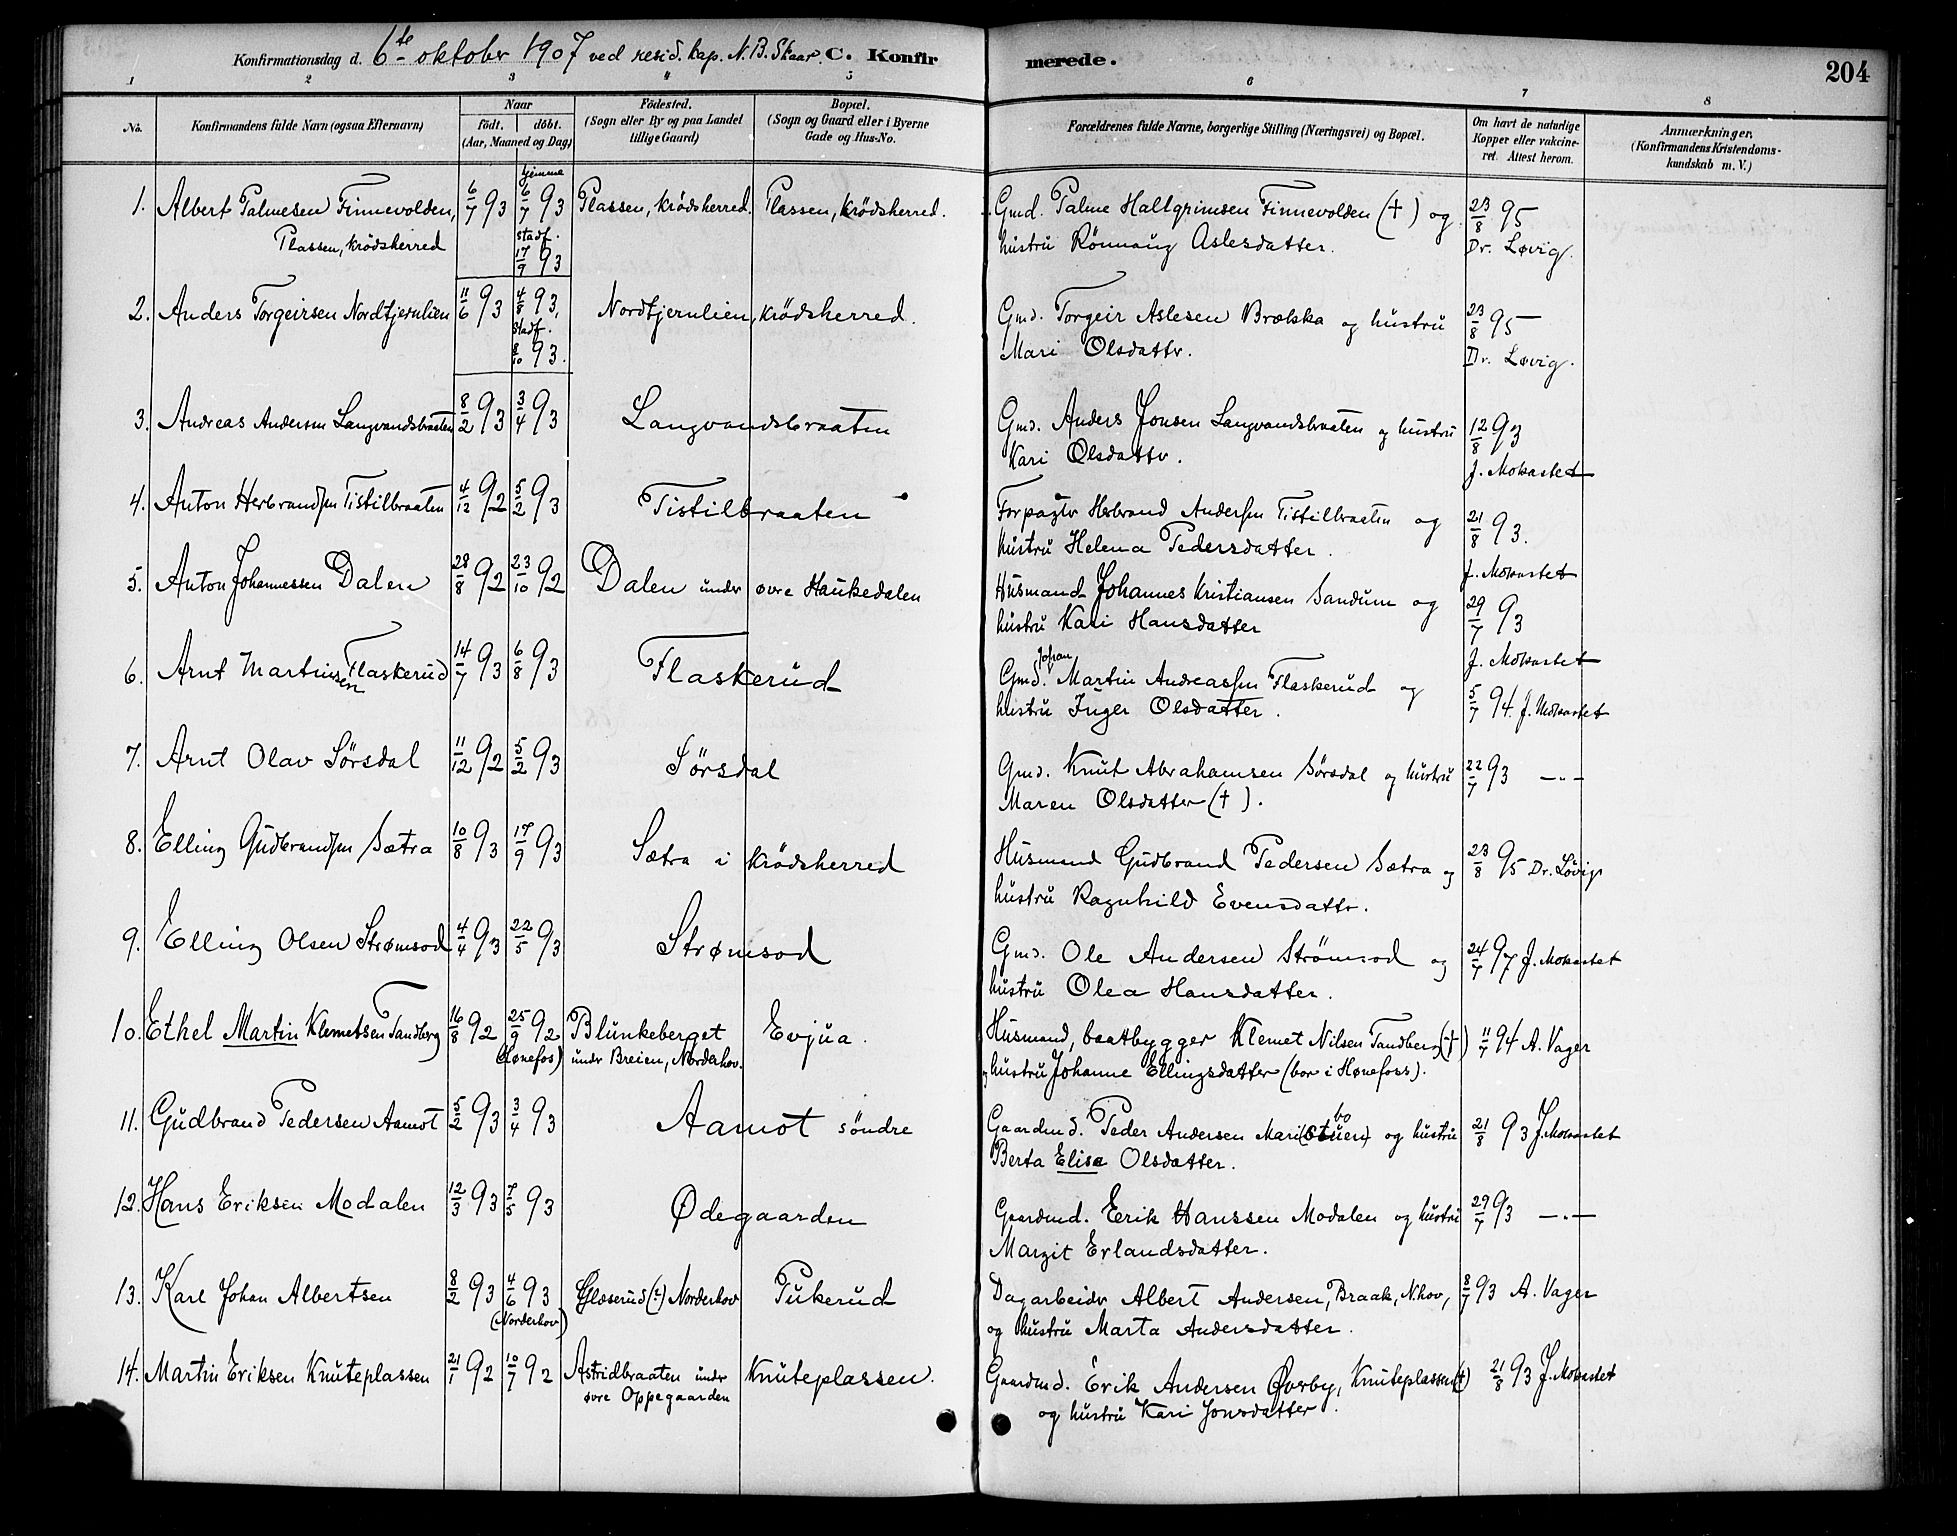 Konfirmationsdag d. 6te oktobr 1907 ved resid. kap. N. B. Skaar. C. Konfirmerede. 204
1 2 3 4 5 6 7 8
No. Konfirmandens fulde Navn (ogsaa Efternavn) Naar födt. döbt. (Aar, Maaned og Dag) Födested. (Sogn eller By og paa Landet tillige Gaard) Bopæl. (Sogn og Gaard eller i Byerne Gade og Hus-No. Forældrenes fulde Navne, borgerlige Stilling (Næringsvei) og Bopæl. Om havt de naturlige Kopper eller vakcineret. Attest herom. Anmærkninger. (Konfirmandens Kristendomskundskab m. V.)
1. Albert Palmesen Finnevolden, 6/7 93 hjemme 6/7 93 Plassen, Krödsherred. Plassen, Krödsherred. Gmd. Palme Hallgrimsen Finnevolden (+) og 23/8 95
Plassen, Krödsherred stadf. 17/9 93 hustru Rönnaug Aslesdatter. Dr. Løvig.
2. Anders Torgeirsen Nordtjernlien 11/6 93 4/8 93, Nordtjernlien, Krödsherred. Gmd. Torgeir Aslesen Brælska og hustru 23/8 95
stadf. 8/10 93. Mari Olsdattr. Dr. Løvig.
3. Andreas Andersen Langvandsbraaten 8/2 93 3/4 93 Langvandsbraaten Gmd. Anders Jonsen Langvandsbraaten og hustru 12/8 93
Kari Olsdattr. J. Mokastet
4. Anton Herbrandsen Tistilbraaten 4/12 92 5/2 93 Tistilbraaten Forpagtr Herbrand Andersen Tistilbraaten og 21/8 93.
hustru Helena Pedersdatter. J. Mokastet
5. Anton Johannessen Dalen 28/8 92 23/10 92 Dalen undr øvre Haukedalen Husmand Johannes Kristiansen Sandum og 29/7 93
hustru Kari Hansdatter J. Mokastet
6. Arnt Martinsen Flaskerud 14/7 93 6/8 93 Flaskerud Gmd. Johan Martin Andreassen Flaskerud og 5/7 94. J. Mokastet
hustru Inger Olsdatter.
7. Arnt Olav Sörsdal 11/12 92 5/2 93 Sörsdal Gmd. Knut Abrahamsen Sörsdal og hustru 22/7 93 —"—
Maren Olsdatter (+).
8. Elling Gudbrandsen Sætra 10/8 93 17/9 93 Sætra i Krödsherred Husmand Gudbrand Pedersen Sætra og 23/8 95 Dr. Lövig
hustru Ragnhild Evensdattr.
9. Elling Olsen Strømsod 4/4 93 22/5 93 Strømsod Gmd. Ole Andersen Strömsod og 24/7 97 J. Mokastet
hustru Olea Hansdatter.
10. Ethel Martin Klemetsen Tandberg 16/8 92 25/9 92 Blunkeberget Evjua. Husmand, baatbygger Klemet Nilsen Tandberg (+) 11/7 94 A. Vager
(Hønefos) undr Breien, Norderhov. og hustru Johanne Ellingsdatter (bor i Hønefoss).
11. Gudbrand Pedersen Aamot 5/2 93 3/4 93 Aamot söndre Gaardmd. Peder Andersen Mari(stuen) bo og hustru 21/8 93 J. Mokastet
Berta Elise Olsdatter.
12. Hans Eriksen Modalen 12/3 93 7/5 93 Ødegaarden Gaardmd. Eerik Hanssen Modalen og hustru 29/7 93 —"—
Margit Erlandsdatter.
13. Karl Johan Albertsen 8/2 93 4/6 93 Glæserud (?) Norderhov Pukerud Dagarbeidr Albert Andersen, Braak, N.hov, 8/7 93 A. Vager
(Norderhov) og hustru Marta Andersdatter.
14. Martin Eriksen Knuteplassen 21/1 92 10/7 92 Astridbraaten undr Knuteplassen. Gaardmd. Erik Andersen Øverby, Knuteplassen (+) 21/8 93 J. Mokastet
øvre Oppegaarden og hustru Kari Jonsdatter.